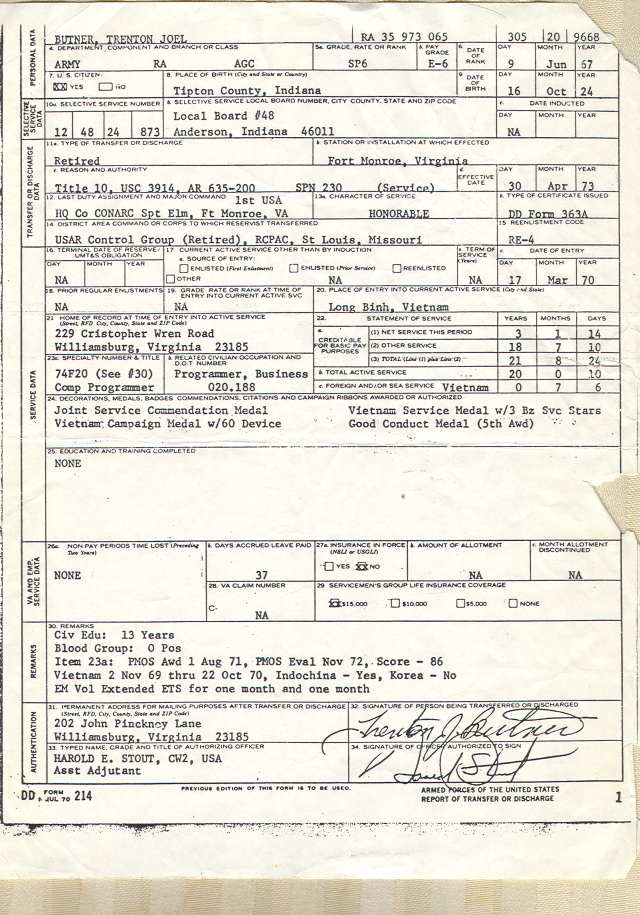 PERSONAL DATA
BUTNER, TRENTON JOEL RA 35 973 065 305 20 9668
4. DEPARTMENT, COMPONENT AND BRANCH OR CLASS 5a. GRADE, RATE OR RANK b. PAY GRADE 6. DATE OF RANK DAY MONTH YEAR
ARMY RA AGC SP6 E-6 9 Jun 67
7. U.S. CITIZEN 8. PLACE OF BIRTH (City and State or Country) 9. DATE OF BIRTH DAY MONTH YEAR
XX YES NO Tipton County, Indiana 16 Oct 24
SELECTIVE SERVICE DATA
10a. SELECTIVE SERVICE NUMBER b. SELECTIVE SERVICE LOCAL BOARD NUMBER, CITY, COUNTY, STATE AND ZIP CODE c. DATE INDUCTED
Local Board #48 DAY MONTH YEAR
12 48 24 873 Anderson, Indiana 46011 NA
TRANSFER OR DISCHARGE DATA
11a. TYPE OF TRANSFER OR DISCHARGE b. STATION OR INSTALLATION AT WHICH EFFECTED
Retired Fort Monroe, Virginia
c. REASON AND AUTHORITY d. EFFECTIVE DATE DAY MONTH YEAR
Title 10, USC 3914, AR 635-200 SPN 230 (Service) 30 Apr 73
12. LAST DUTY ASSIGNMENT AND MAJOR COMMAND 1st USA 13a. CHARACTER OF SERVICE b. TYPE OF CERTIFICATE ISSUED
HQ Co CONARC Spt Elm, Ft Monroe, VA HONORABLE DD Form 363A
14. DISTRICT AREA COMMAND OR CORPS TO WHICH RESERVIST TRANSFERRED 15. REENLISTMENT CODE
USAR Control Group (Retired), RCPAC, St Louis, Missouri RE-4
16. TERMINAL DATE OF RESERVE/ UMT&S OBLIGATION 17. CURRENT ACTIVE SERVICE OTHER THAN BY INDUCTION b. TERM OF SERVICE (Years) c. DATE OF ENTRY
DAY MONTH YEAR a. SOURCE OF ENTRY: DAY MONTH YEAR
ENLISTED (First Enlistment) ENLISTED (Prior Service) REENLISTED
NA OTHER NA NA 17 Mar 70
18. PRIOR REGULAR ENLISTMENTS 19. GRADE, RATE OR RANK AT TIME OF ENTRY INTO CURRENT ACTIVE SVC 20. PLACE OF ENTRY INTO CURRENT ACTIVE SERVICE (City and State)
NA NA Long Binh, Vietnam
SERVICE DATA
21. HOME OF RECORD AT TIME OF ENTRY INTO ACTIVE SERVICE (Street, RFD, City, County, State and ZIP Code) 22. STATEMENT OF SERVICE YEARS MONTHS DAYS
229 Cristopher Wren Road a. CREDITABLE FOR BASIC PAY PURPOSES (1) NET SERVICE THIS PERIOD 3 1 14
Williamsburg, Virginia 23185 (2) OTHER SERVICE 18 7 10
23a. SPECIALTY NUMBER & TITLE b. RELATED CIVILIAN OCCUPATION AND D.O.T. NUMBER (3) TOTAL (Line (1) plus Line (2)) 21 8 24
74F20 (See #30) Programmer, Business b. TOTAL ACTIVE SERVICE 20 0 10
Comp Programmer 020.188 c. FOREIGN AND/OR SEA SERVICE Vietnam 0 7 6
24. DECORATIONS, MEDALS, BADGES, COMMENDATIONS, CITATIONS AND CAMPAIGN RIBBONS AWARDED OR AUTHORIZED
Joint Service Commendation Medal Vietnam Service Medal w/3 Bz Svc Stars
Vietnam Campaign Medal w/60 Device Good Conduct Medal (5th Awd)
25. EDUCATION AND TRAINING COMPLETED
NONE
VA AND EMP. SERVICE DATA
26a. NON-PAY PERIODS TIME LOST (Preceding Two Years) b. DAYS ACCRUED LEAVE PAID 27a. INSURANCE IN FORCE (NSLI or USGLI) b. AMOUNT OF ALLOTMENT c. MONTH ALLOTMENT DISCONTINUED
YES XX NO
NONE 37 NA NA
28. VA CLAIM NUMBER 29. SERVICEMEN'S GROUP LIFE INSURANCE COVERAGE
C- NA XX $15,000 $10,000 $5,000 NONE
REMARKS
30. REMARKS
Civ Edu: 13 Years
Blood Group: O Pos
Item 23a: PMOS Awd 1 Aug 71, PMOS Eval Nov 72, Score - 86
Vietnam 2 Nov 69 thru 22 Oct 70, Indochina - Yes, Korea - No
EM Vol Extended ETS for one month and one month
AUTHENTICATION
31. PERMANENT ADDRESS FOR MAILING PURPOSES AFTER TRANSFER OR DISCHARGE (Street, RFD, City, County, State and ZIP Code) 32. SIGNATURE OF PERSON BEING TRANSFERRED OR DISCHARGED
202 John Pinckney Lane Trenton J. Butner
Williamsburg, Virginia 23185
33. TYPED NAME, GRADE AND TITLE OF AUTHORIZING OFFICER 34. SIGNATURE OF OFFICER AUTHORIZED TO SIGN
HAROLD E. STOUT, CW2, USA
Asst Adjutant
DD FORM 1 JUL 70 214 PREVIOUS EDITION OF THIS FORM IS TO BE USED. ARMED FORCES OF THE UNITED STATES
REPORT OF TRANSFER OR DISCHARGE 1